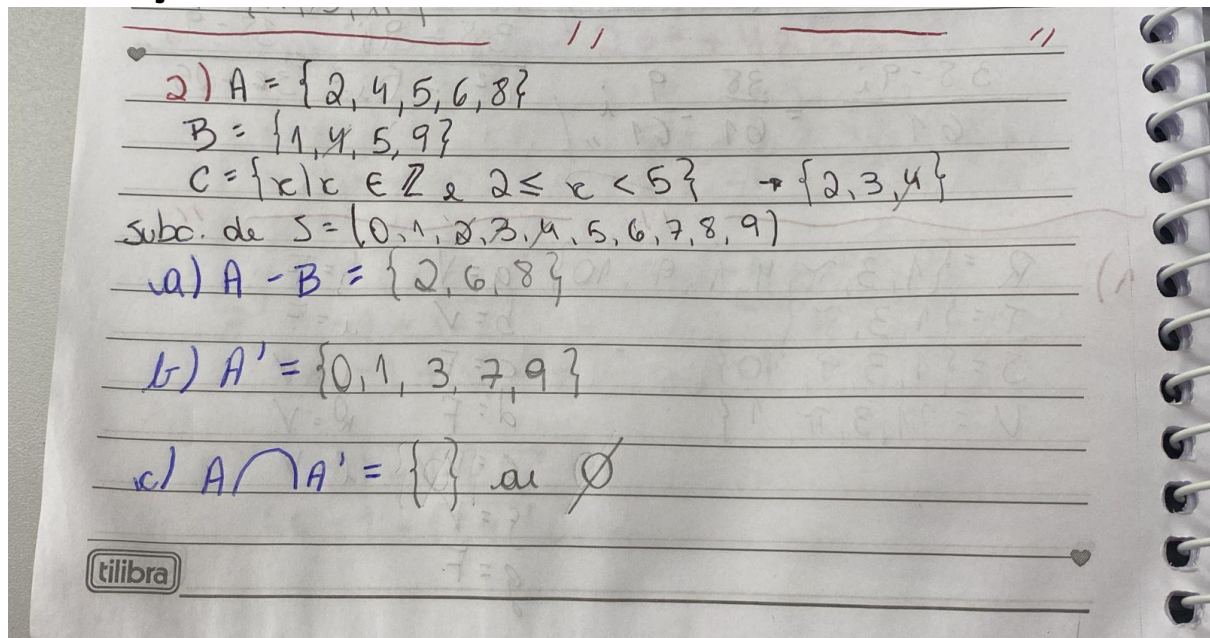 2) A = {2, 4, 5, 6, 8}
B = {1, 4, 5, 9}
C = {x|x ∈ ℤ e 2 ≤ x < 5} → {2, 3, 4}
subc. de S = (0, 1, 2, 3, 4, 5, 6, 7, 8, 9)
a) A - B = {2, 6, 8}
b) A' = {0, 1, 3, 7, 9}
c) A ∩ A' = { } ou ∅
tilibra